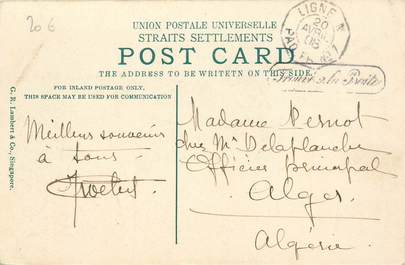 20 €
UNION POSTALE UNIVERSELLE
STRAITS SETTLEMENTS
POST CARD
THE ADDRESS TO BE WRITETN ON THIS SIDE
FOR INLAND POSTAGE ONLY,
THIS SPACE MAY BE USED FOR COMMUNICATION
LIGNE N
20
AVRIL
06
PAQ. FR.
Trouvé à la Boîte
G. R. Lambert & Co., Singapore.
Meilleur souvenir
à tous
Madame Pesnot
chez Mr Delaplanche
Officier principal
Alger
Algérie